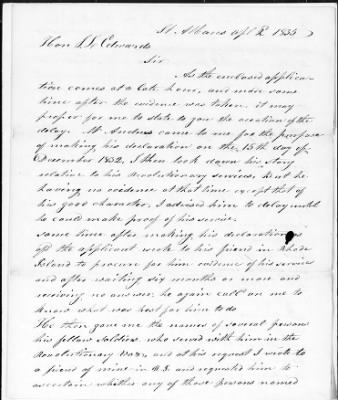 St. Albans Apl 2 1835
Hon J. L. Edwards
Sir
As the enclosed applica-
tion comes at a late hour, and more some
time after the evidence was taken, it may
proper for me to state to you the occation of the
delay. Mr Andrus came to me for the purpose
of making his declaration on the 15th day of
December 1832, I then took down his story
relative to his Revolutionary services, but he
having no evidence at that time except that of
his good character, I advised him to delay until
he could make proof of his service.
Some time after making his declaration as
afd the applicant wrote to his friend in Rhode
Island to procure for him evidence of his service
and after waiting six months or more and
receiving no answer, he again call on me to
know what was best for him to do
He then gave me the names of several persons
his fellow soldiers who served with him in the
Revolutionary War, and at his request I wrote to
a friend of mine in R.I. and requested him to
ascertain whether any of those persons named